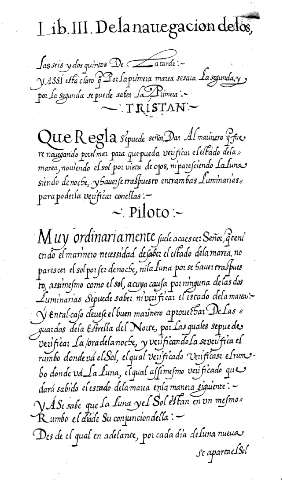 Lib. III. De la nauegacion delos,
las seis y dos quintos De la tarde:
y ASSI esta claro q̃ Por la primera marea se saca La segunda, y
por la segunda se puede saber la Primera.
TRISTAN:
Que Regla se puede señor Dar Al marinero q̃
re nauegando por el mar para que pueda verificar el estado dela
marea, no viendo el sol por viento de ojos, ni paresciendo La luna
siendo de noche, y hauerse traspuesto entrambas Luminarias
para poderla verificar con ellas:
Piloto:
Muy ordinariamente suele acaescer Señor, q̃ teni
endo el marinero necessidad de saber el estado dela marea, no
paresca el sol por ser de noche, ni la Luna por se hauer traspues
to, assimesmo como el sol, a cuya causa por ninguna de las dos
Luminarias se puede saber ni verificar el estado dela marea:
Y en tal caso deuese el buen marinero aprouechar De Las
guardas dela Estrella del Norte, por las quales se puede
verificar La hora dela noche, y verificando La se verifica el
rumbo donde vá el Sol, el qual verificado verificase el rum
bo donde vá La Luna, el qual assimesmo verificado que
dará sabido el estado dela marea en la manera siguiente:
YA Se sabe que La Luna y el Sol Están en vn mesmo
Rumbo el dia de Su conjuncion della:
Des de el qual en adelante, por cada dia de Luna nueua
se aparta el Sol